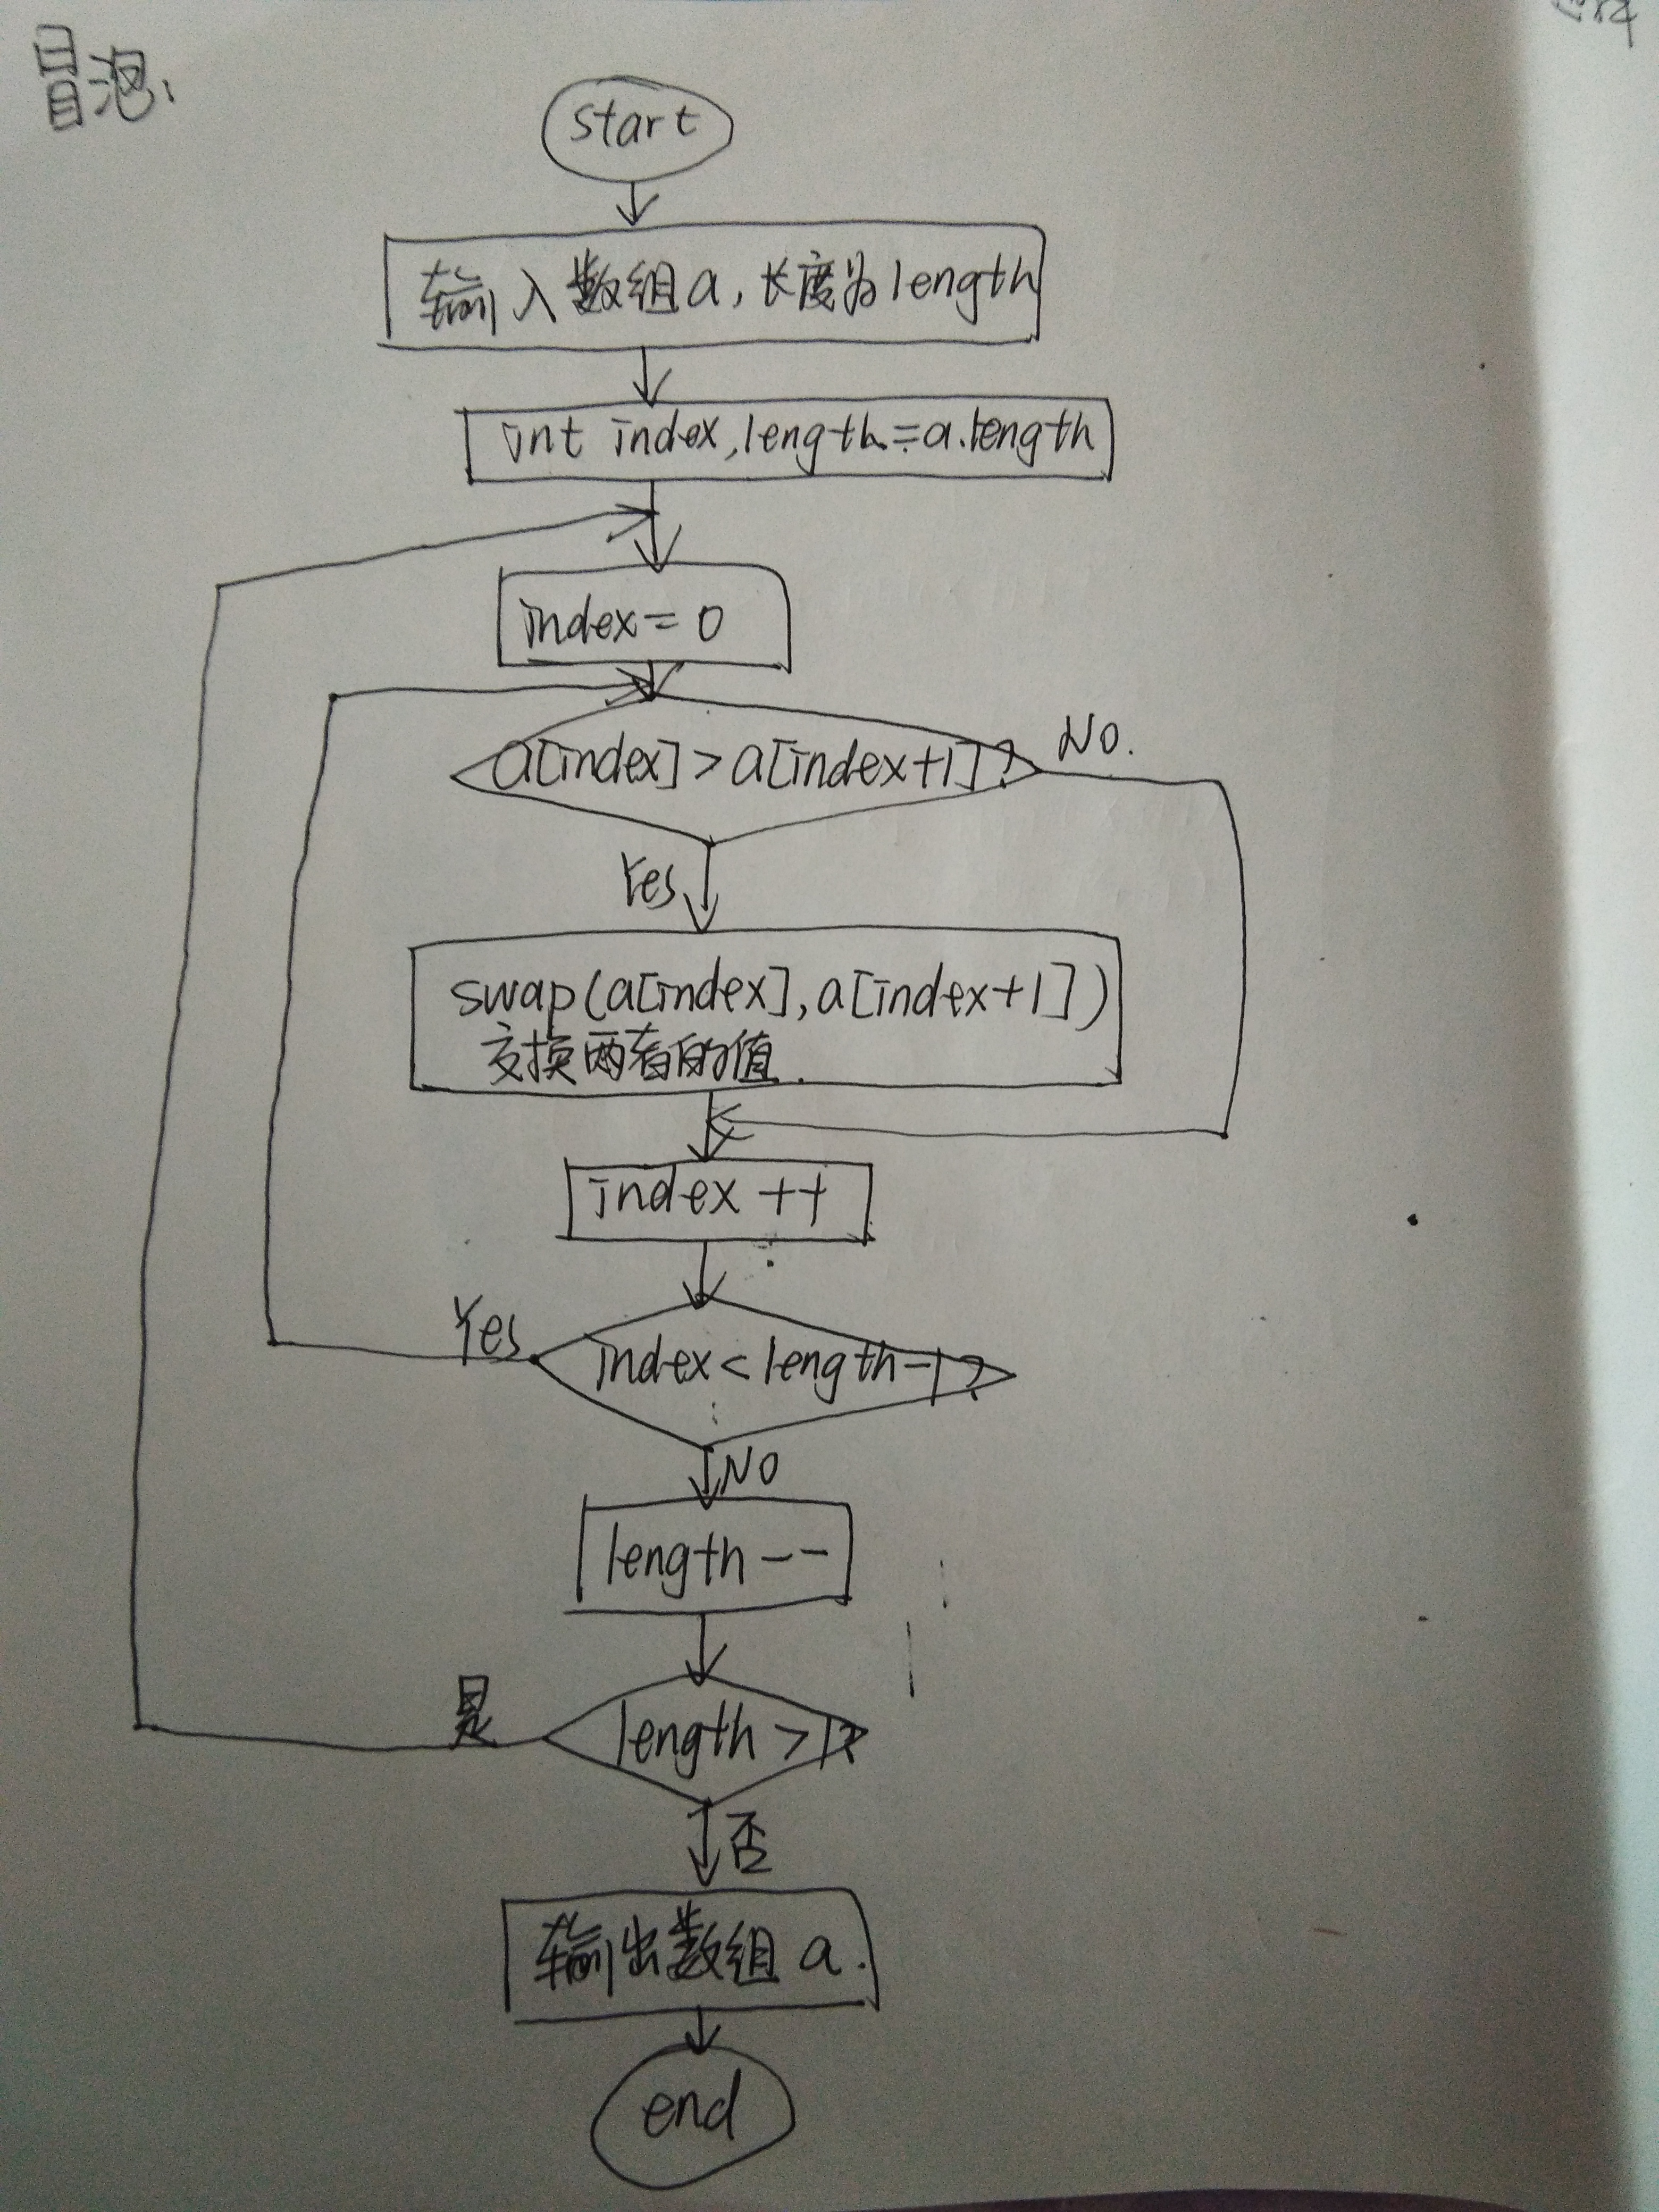 冒泡:
start
输入数组a,长度为length
int index,length=a.length
index=0
a[index]>a[index+1]?
No.
Yes
swap(a[index],a[index+1])
交换两者的值.
index ++
Yes
index<length-1?
NO
length--
是
length>1?
否
输出数组 a.
end